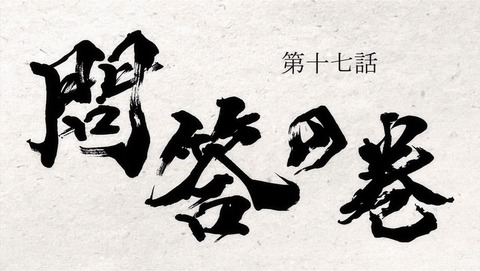 第十七話
問答の巻